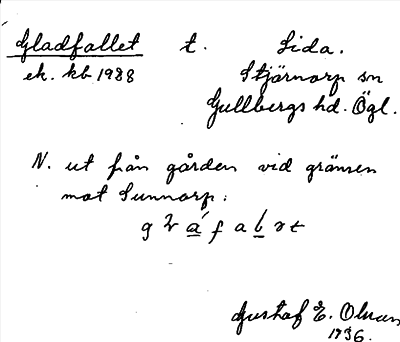 Gladfallet t. Lida.
ek. kb 1988 Stjärnorp sn
Gullbergs hd. Ögl.
N. ut från gården vid gränsen
mot Sunnorp:
Gustaf E. Olsson
1936.